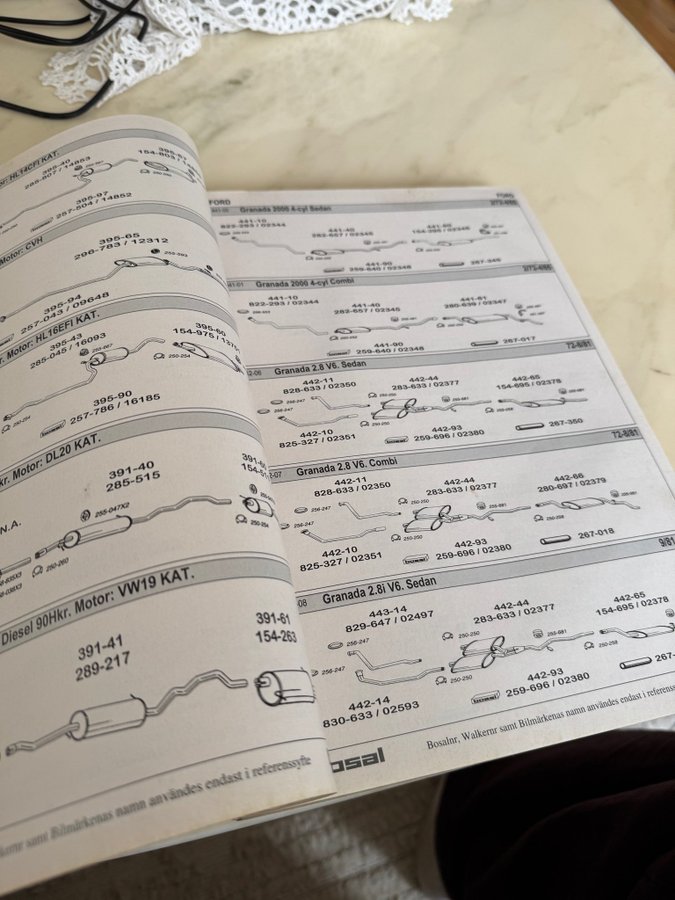 HL14CFi KAT.
395-40
285-807 / 14853
395-97
257-504 / 14852
Motor: CVH
395-65
296-783 / 12312
395-94
257-043 / 09648
Motor: HL16EFi KAT.
395-43
285-045 / 16093
395-60
395-90
257-786 / 16185
Motor: DL20 KAT.
391-40
285-515
255-047X2
250-254
N.A.
250-260
Diesel 90Hkr. Motor: VW19 KAT.
391-41
289-217
391-61
154-263
samt Bilmärkenas namn användes endast i referenssyfte
FORD
FORD
Granada 2000 4-cyl Sedan
441-10
822-293 / 02344
441-40
282-657 / 02345
441-90
259-640 / 02348
267-345
Granada 2000 4-cyl Combi
441-10
822-293 / 02344
441-40
282-657 / 02345
441-61
280-639 / 02347
441-90
259-640 / 02348
267-017
Granada 2.8 V6. Sedan
72-8/81
442-11
828-633 / 02350
442-44
283-633 / 02377
442-65
154-695 / 02378
256-247
256-247
442-10
825-327 / 02351
442-93
259-696 / 02380
267-350
Granada 2.8 V6. Combi
72-8/81
442-11
828-633 / 02350
442-44
283-633 / 02377
442-66
280-697 / 02379
256-247
256-247
442-10
825-327 / 02351
442-93
259-696 / 02380
267-018
Granada 2.8i V6. Sedan
9/81
443-14
829-647 / 02497
442-44
283-633 / 02377
442-65
154-695 / 02378
256-247
256-247
250-250
255-681
250-250
442-14
830-633 / 02593
442-93
259-696 / 02380
267-
osal
Bosalnr, Walkernr samt Bilmärkenas namn användes endast i referenss